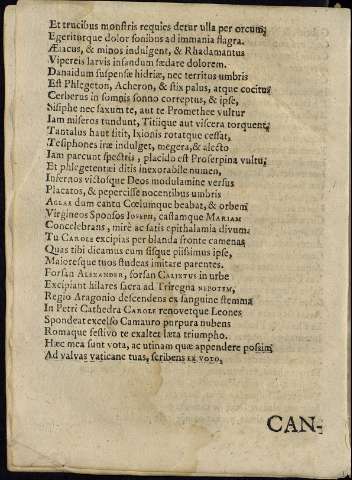 Et trucibus monstris requies detur ulla per orcum;
Egeriturque dolor sonibus ad immania flagra.
Æiacus, & minos indulgent, & Rhadamantus
Vipereis larvis infandum sædare dolorem.
Danaidum suspensæ hidriæ, nec territus umbris
Est Phlegeton, Acheron, & stix palus, atque cocitus
Cerberus in somnis sonno correptus, & ipse,
Sisiphe nec saxum te, aut te Promethee vultur
Iam miseros tundunt, Titiique aut viscera torquent,
Tantalus haut sitit, Ixionis rotatque cessat,
Tesiphones iræ indulget, megera, & alecto
Iam parcunt spectris, placido est Proserpina vultu,
Et phlegetentæi ditis inexorabile numen,
Infernos victosque Deos modulamine versus
Placatos, & pepercisse nocentibus umbris
AGLAE dum cantu Cœlumque beabat, & orbem
Virgineos Sponsos IOSEPH, castamque MARIAM
Concelebrans, mirè ac satis epithalamia divum.
Tu CAROLE excipias per blanda fronte camenas
Quas tibi dicamus cum sisque piissimus ipse,
Maioresque tuos studeas imitare parentes.
Forsan ALEXANDER, forsan CALIXTUS in urbe
Excipiant hilares sacra ad Triregna NEPOTEM,
Regio Aragonio descendens ex sanguine stemma
In Petri Cathedra CAROLE renovetque Leones
Spondeat excelso Camauro purpura nubens
Romaque festivo te exaltet læta triumpho.
Hæc mea sunt vota, ac utinam quæ appendere possim
Ad valvas vaticane tuas, scribens EX VOTO,
CAN-